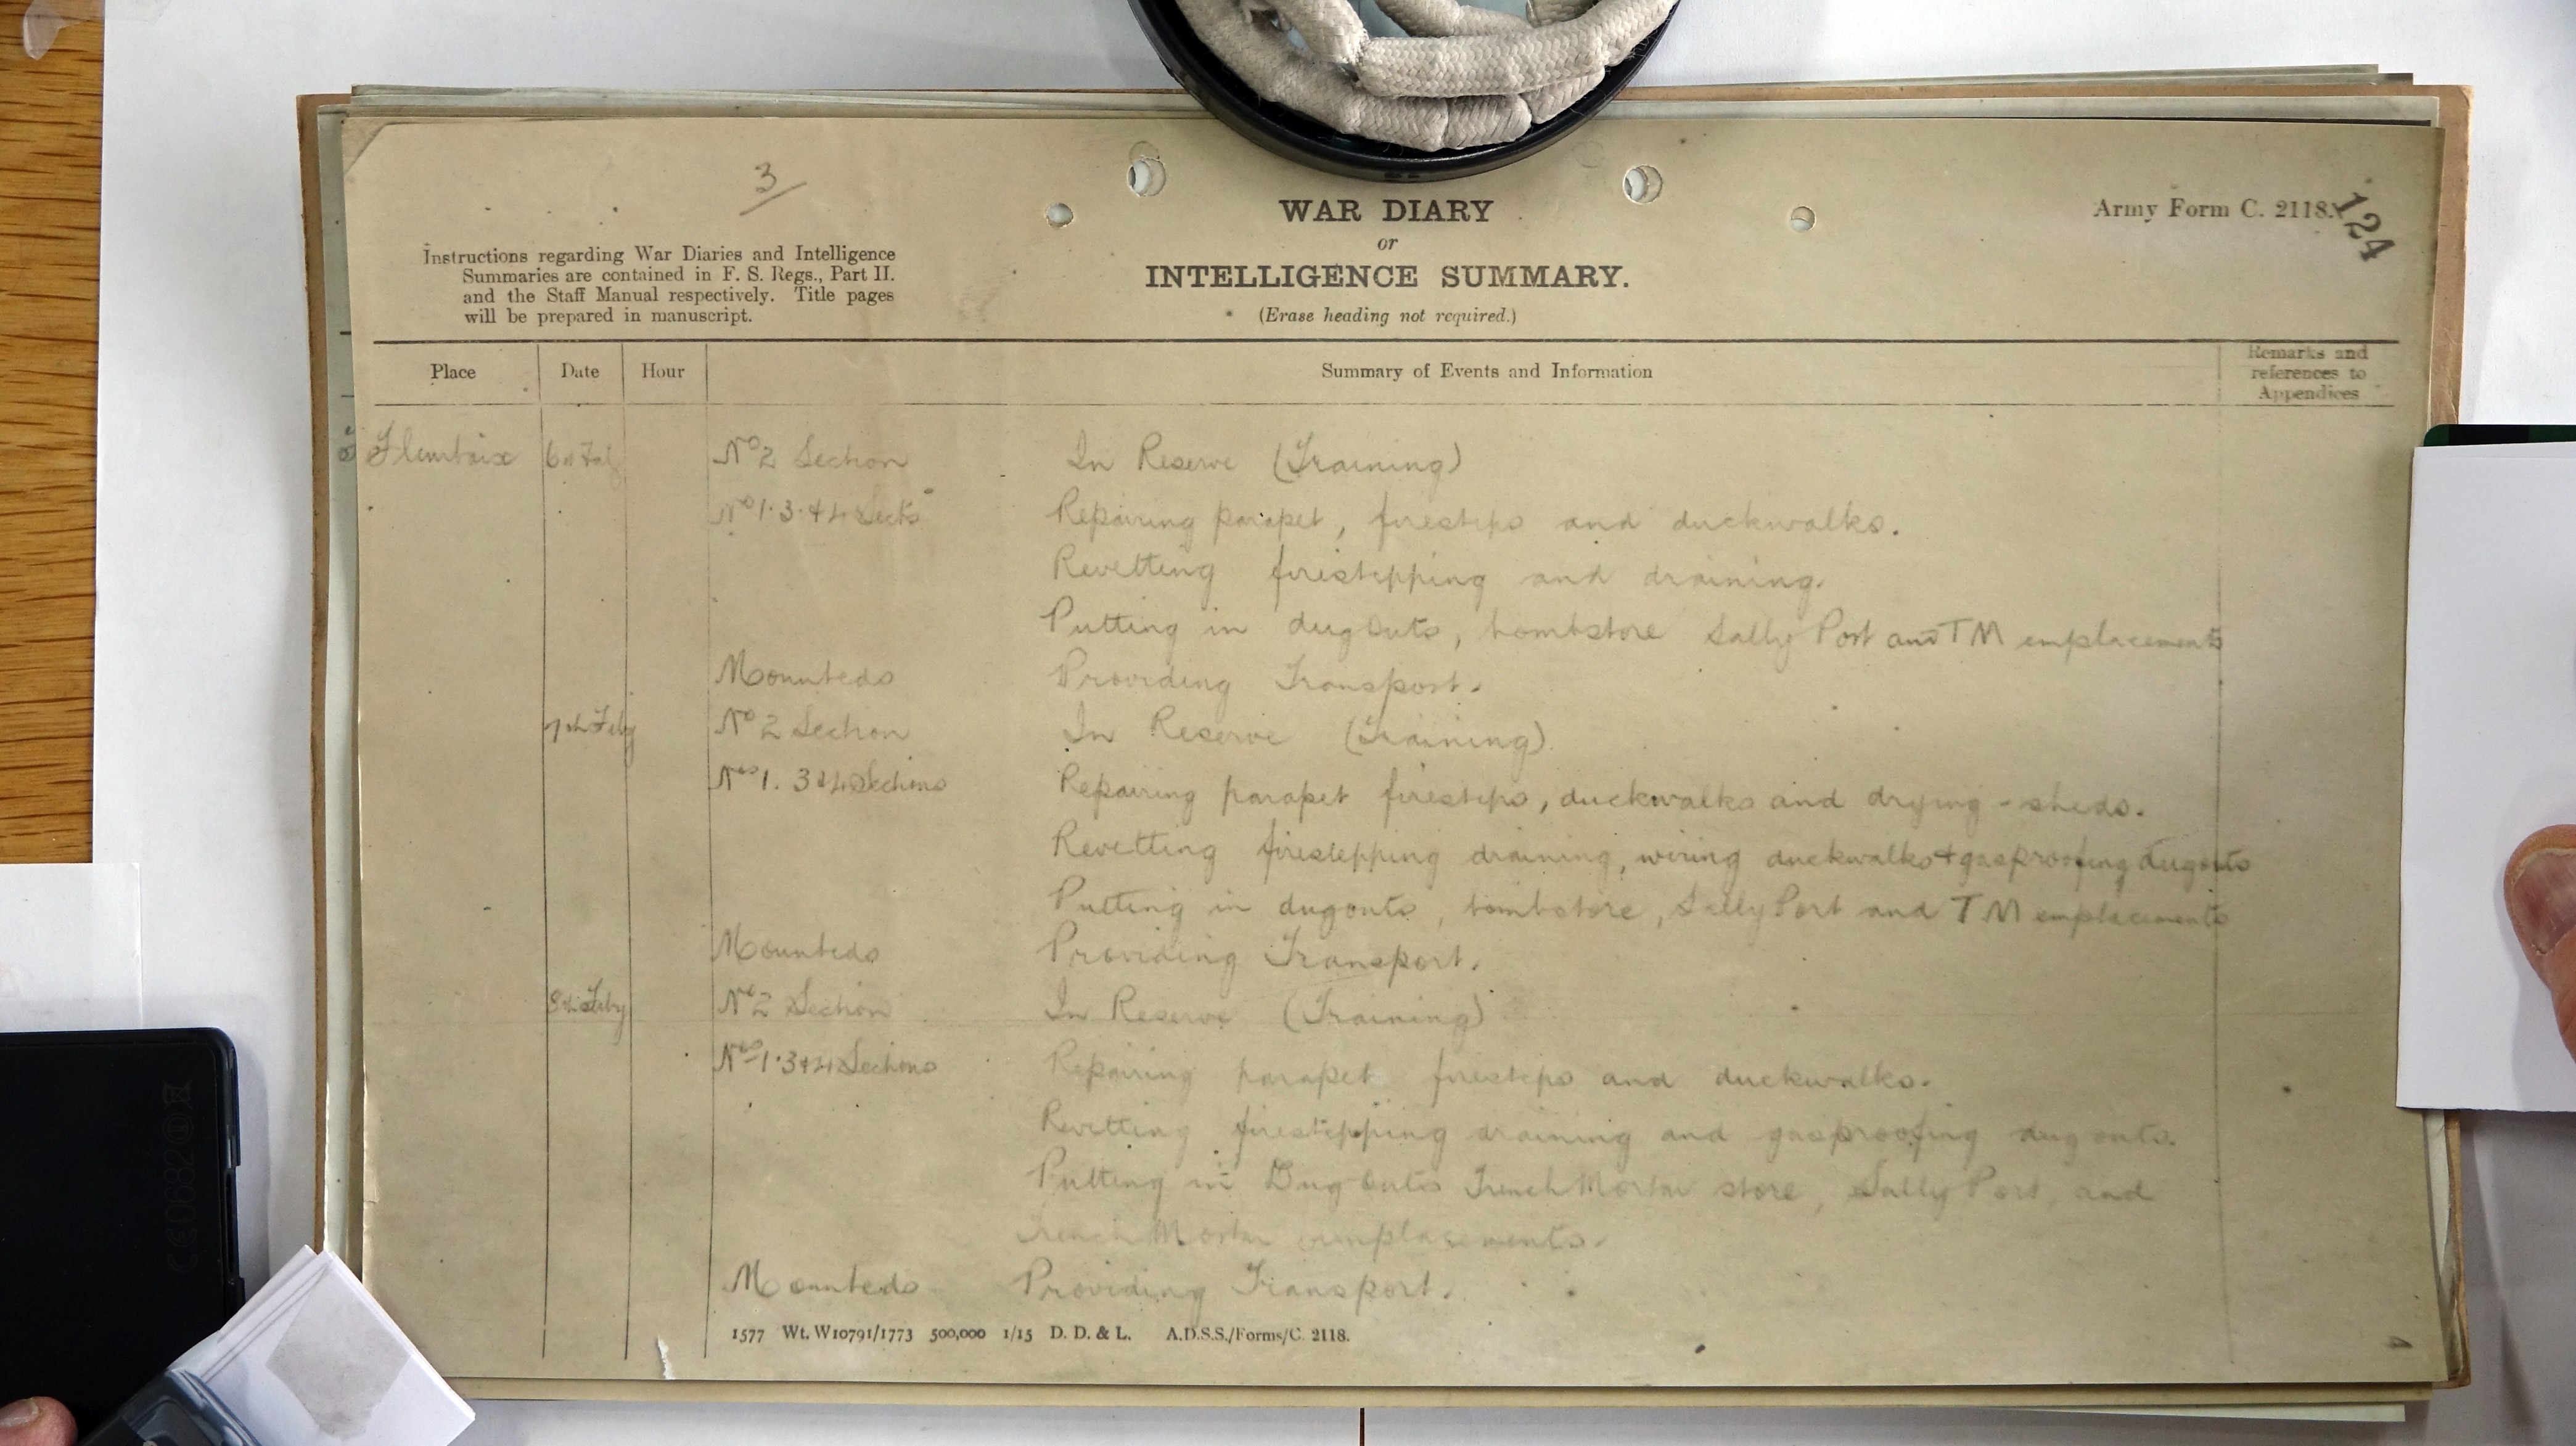 3
WAR DIARY
or
INTELLIGENCE SUMMARY.
(Erase heading not required.)
Army Form C. 2118.
124
Instructions regarding War Diaries and Intelligence
Summaries are contained in F. S. Regs., Part II.
and the Staff Manual respectively. Title pages
will be prepared in manuscript.
Place Date Hour Summary of Events and Information Remarks and references to Appendices
Fleurbaix 6th Feby No 2 Section In Reserve (Training)
No 1. 3. + 4 Sects Repairing parapet, firesteps and duckwalks.
Revetting firestepping and draining.
Putting in dug Outs, bombstore Sally Port and TM emplacements
Mounteds Providing Transport.
7th Feby No 2 Section In Reserve (Training)
Nos 1. 3+4 Sections Repairing parapet firesteps, duckwalks and drying-sheds.
Revetting firestepping draining, wiring duckwalks + gasproofing dugouts
Putting in dugouts, bombstore, Sally Port and TM emplacements
Mounteds Providing Transport.
8th Feby No 2 Section In Reserve (Training)
Nos 1. 3+4 Sections Repairing parapet firesteps and duckwalks.
Revetting firestepping draining and gasproofing dug outs.
Putting in Dug Outs Trench Mortar store, Sally Port, and
Trench Mortar emplacements.
Mounteds Providing Transport.
1577 Wt. W10791/1773 500,000 1/15 D. D. & L. A.D.S.S./Forms/C. 2118.